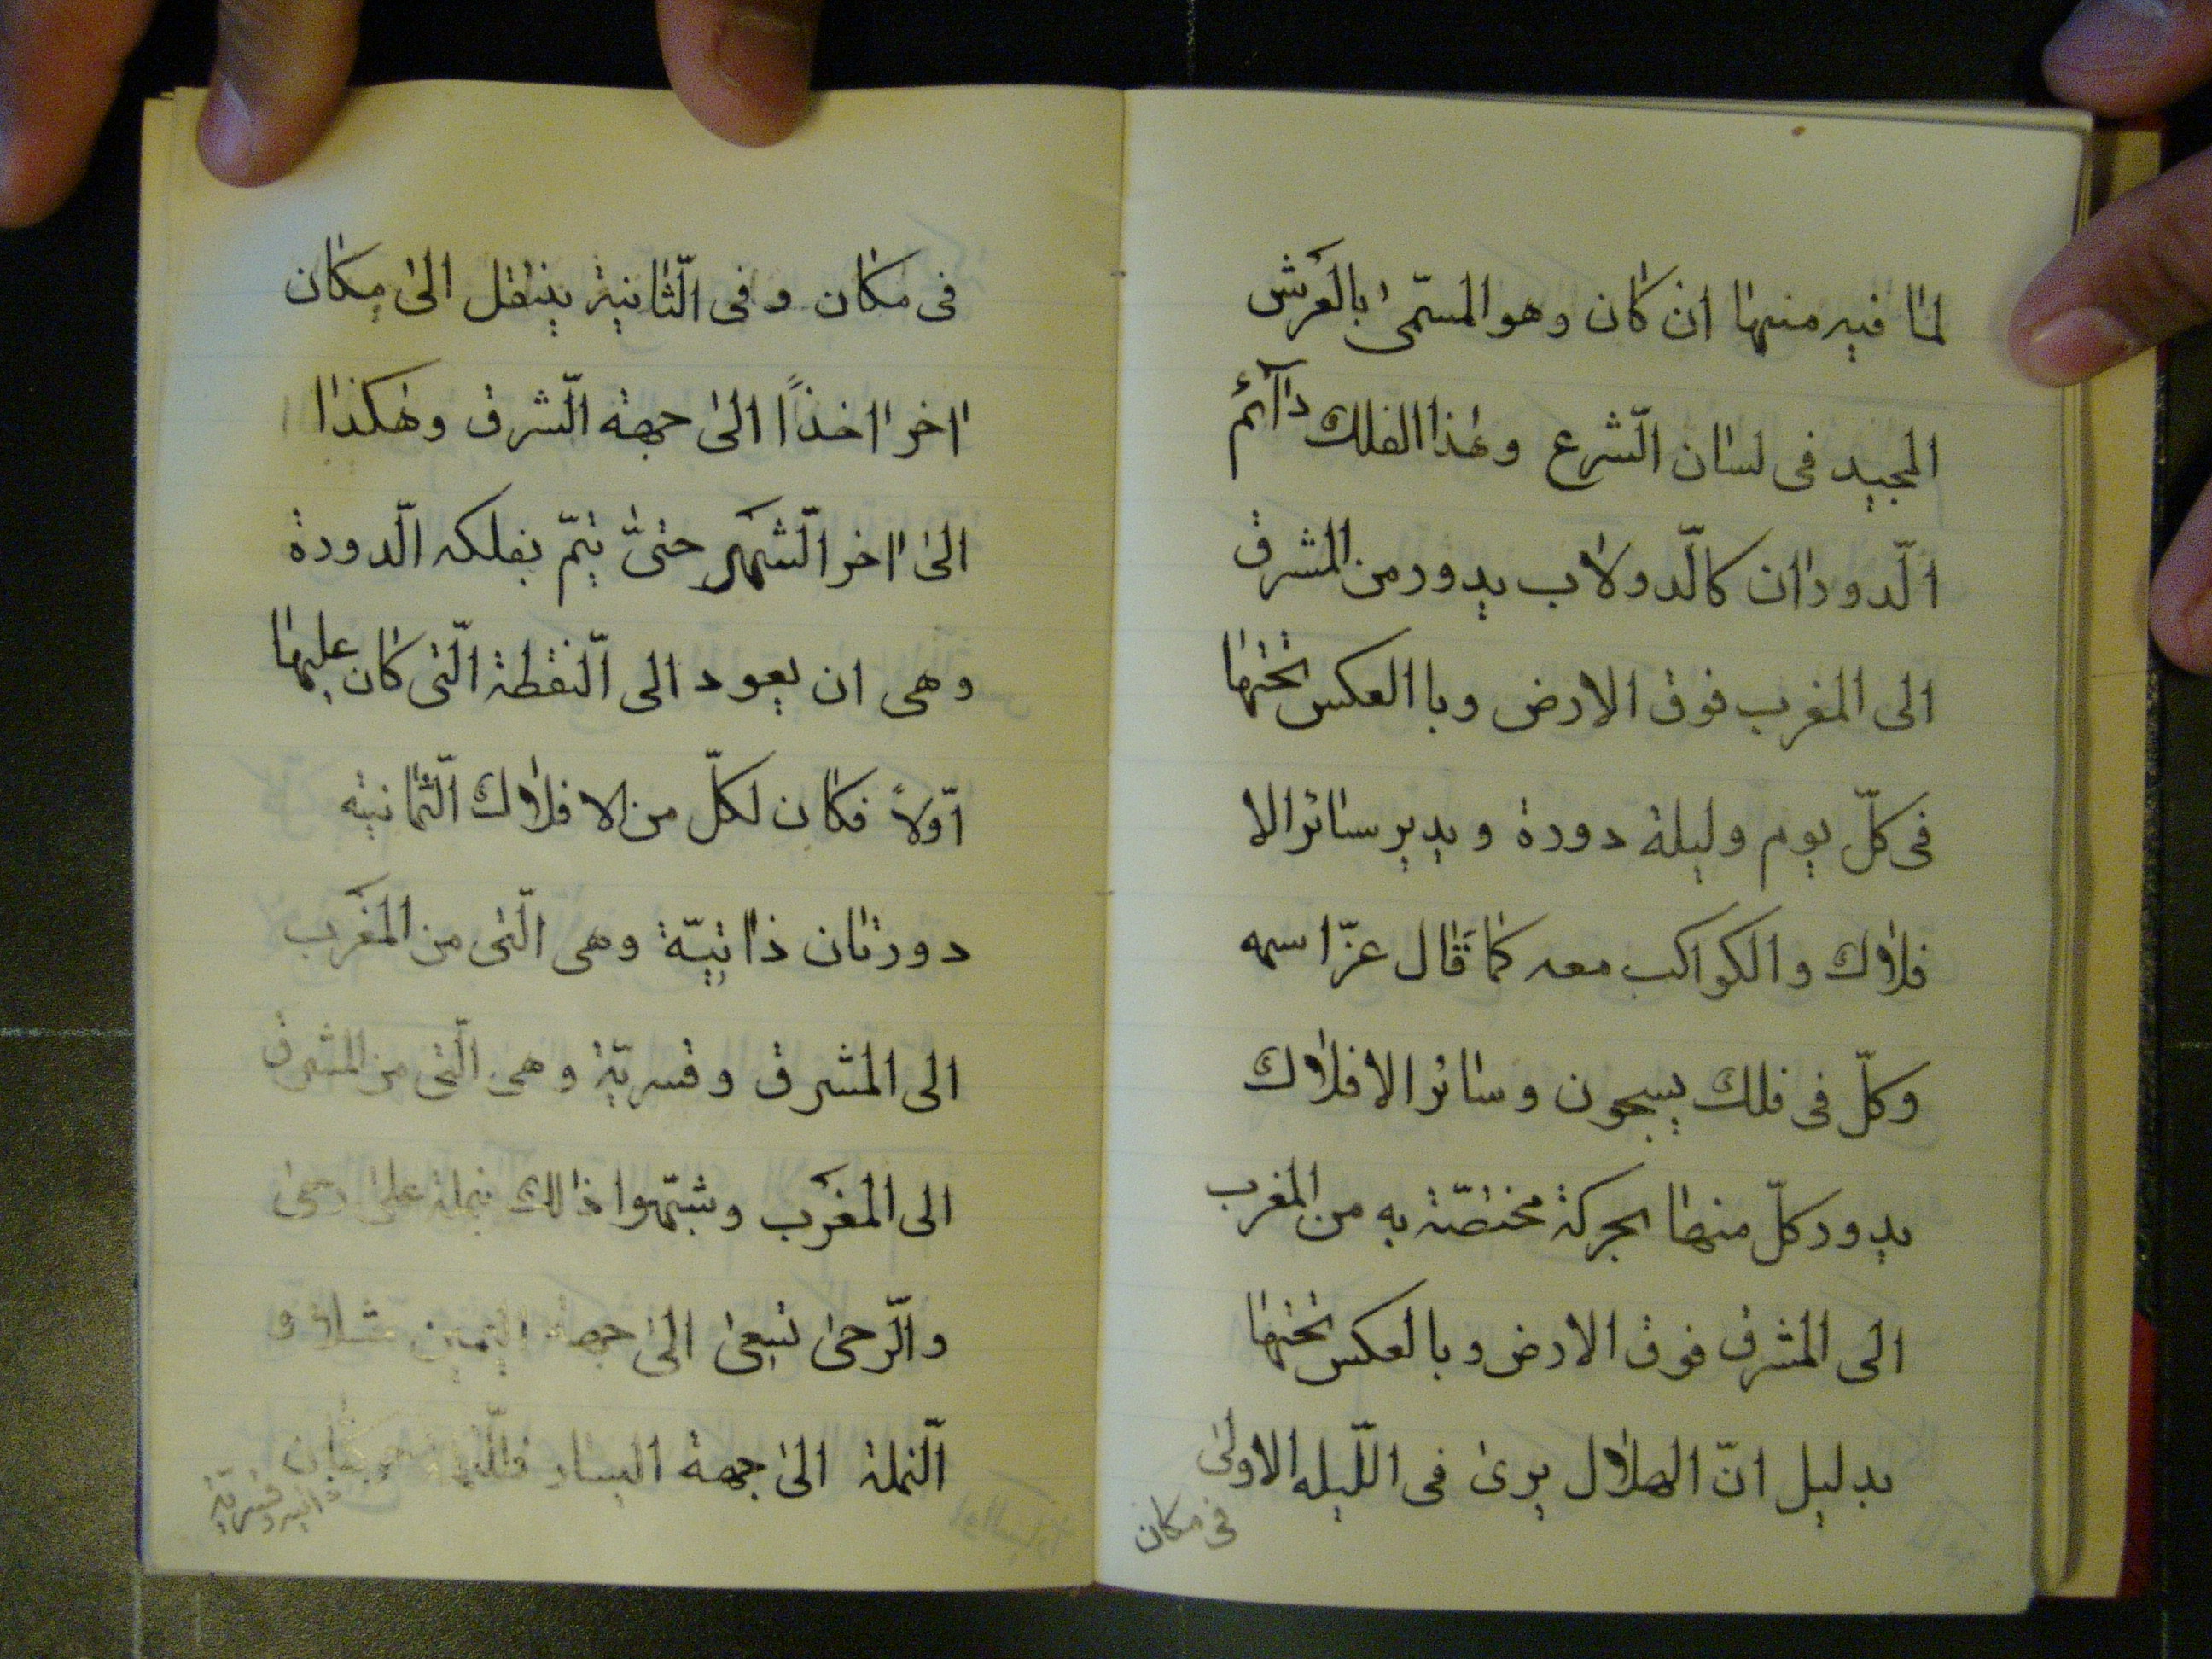 لما فيه منها ان كان وهو المسمّى بالعرش
المجيد فى لسان الشّرع وهذا الفلك دآئم
الّدوران كالّدولاب يدور من المشرق
الى المغرب فوق الارض وبا العكس تحتها
فى كلّ يوم وليلة دورة ويدير سائر الا
فلاك والكواكب معه كما قال عزّ اسمه
وكلّ فى فلك يسبحون وسائر الافلاك
يدور كلّ منها بحركة مختصّة به من المغرب
الى المشرق فوق الارض وبالعكس تحتها
بدليل انّ الهلال يرى فى اللّيله الاولى
فى مكان
فى مكان وفى الّثانية ينتقل الى مكان
ااخر ااخذًا الى جهة الّشرق وهكذا
الى ااخر الّشهر حتىّ يتمّ بفلكه الّدورة
وهى ان يعود الى الّنقطة الّتى كان عليها
اوّلاً فكان لكلّ من الافلاك الّثمانيه
دورتان ذاتيّة وهى الّتى من المغرب
الى المشرق وقسريّة وهى الّتى من المشرق
الى المغرب وشبّهوا ذالك بنملة على رحى
والّرحى تسعى الى جهة اليمين مثلا و
الّنملة الى جهة اليسار فللّنملة حركتان
ذاتيه وقسريّة